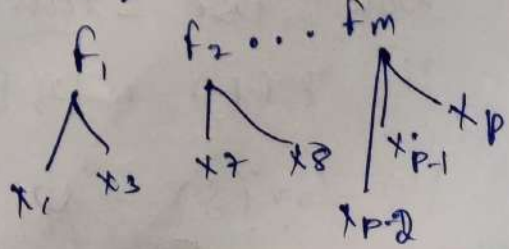 f₁ f₂ .... fm
x₁ x₃ x₇ x₈ x_{p-1} x_p
x_{p-2}